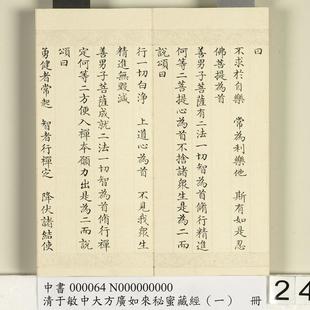 曰
不求於自樂　常為利樂他　斯有如是忍
佛菩提為首
善男子菩薩有二法一切智為首脩行精進
何等二菩提心為首不捨諸眾生是為二而
說頌曰
行一切白淨　上道心為首　不見我眾生
精進無毀減
善男子菩薩成就二法一切智為首脩行禪
定何等二方便入禪本願力出是為二而說
頌曰
勇健者常起　智者行禪定　降伏諸結使
中書 000064 N000000000
清于敏中大方廣如來秘蜜藏經（一）　冊
24